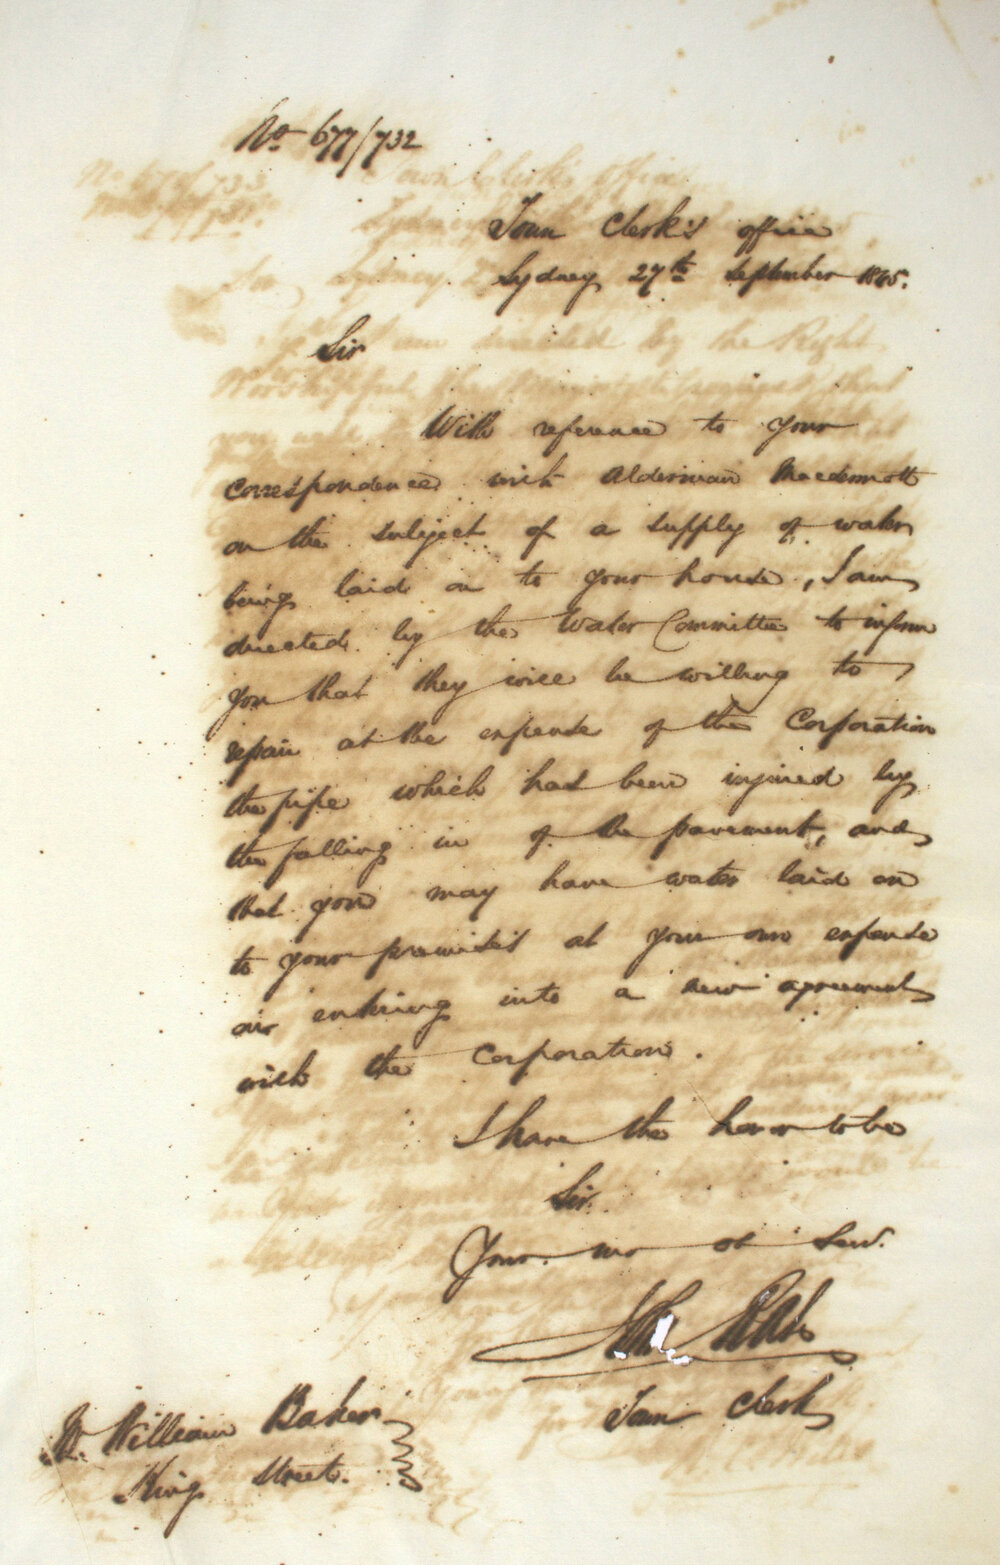 No 677/732
Town Clerk's office
Sydney 27th September 1845.
Sir
With reference to your
correspondence with Alderman Macdermott
on the subject of a supply of water
being laid on to your house, I am
directed by the Water Committee to inform
you that they will be willing to
repair at the expense of the Corporation
the pipe which has been injured by
the falling in of the pavement, and
that you may have water laid on
to your premises at your own expense
on entering into a new agreement
with the Corporation.
I have the honor to be
Sir
Your mo ob Serv.
Town Clerk
Mr. William Baker
King Street.